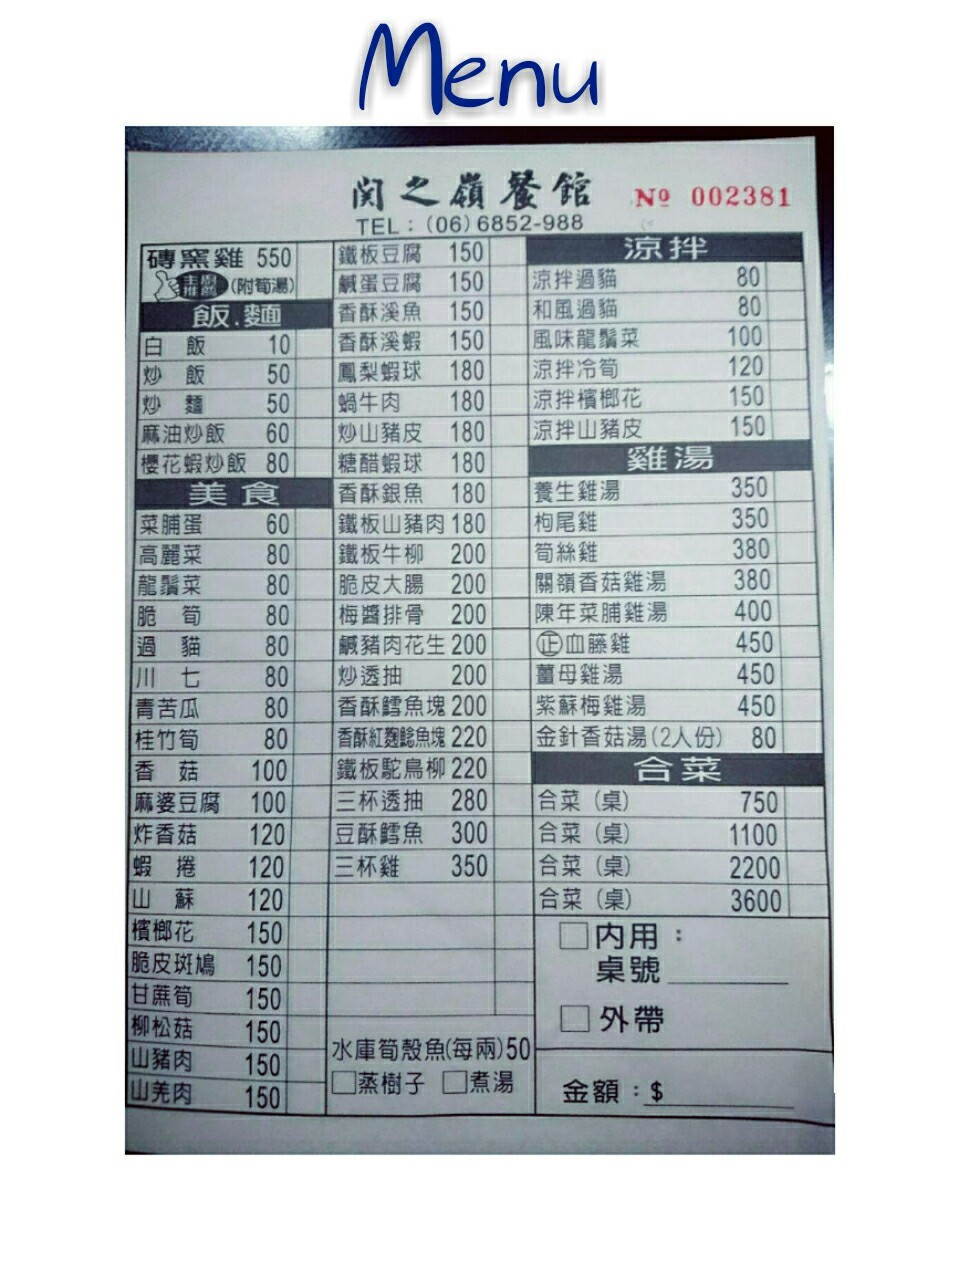 Menu
関之嶺餐館 Nº 002381
TEL：(06)6852-988
磚窯雞 550
主廚推薦 (附筍湯)
飯.麵
白飯 10
炒飯 50
炒麵 50
麻油炒飯 60
櫻花蝦炒飯 80
美食
菜脯蛋 60
高麗菜 80
龍鬚菜 80
脆筍 80
過貓 80
川七 80
青苦瓜 80
桂竹筍 80
香菇 100
麻婆豆腐 100
炸香菇 120
蝦捲 120
山蘇 120
檳榔花 150
脆皮斑鳩 150
甘蔗筍 150
柳松菇 150
山豬肉 150
山羌肉 150
鐵板豆腐 150
鹹蛋豆腐 150
香酥溪魚 150
香酥溪蝦 150
鳳梨蝦球 180
蝸牛肉 180
炒山豬皮 180
糖醋蝦球 180
香酥銀魚 180
鐵板山豬肉 180
鐵板牛柳 200
脆皮大腸 200
梅醬排骨 200
鹹豬肉花生 200
炒透抽 200
香酥鱈魚塊 200
香酥紅麴鯰魚塊 220
鐵板駝鳥柳 220
三杯透抽 280
豆酥鱈魚 300
三杯雞 350
水庫筍殼魚(每兩)50
□蒸樹子 □煮湯
涼拌
涼拌過貓 80
和風過貓 80
風味龍鬚菜 100
涼拌冷筍 120
涼拌檳榔花 150
涼拌山豬皮 150
雞湯
養生雞湯 350
枸尾雞 350
筍絲雞 380
關嶺香菇雞湯 380
陳年菜脯雞湯 400
㊣血藤雞 450
薑母雞湯 450
紫蘇梅雞湯 450
金針香菇湯(2人份) 80
合菜
合菜(桌) 750
合菜(桌) 1100
合菜(桌) 2200
合菜(桌) 3600
□內用：
桌號
□外帶
金額：$